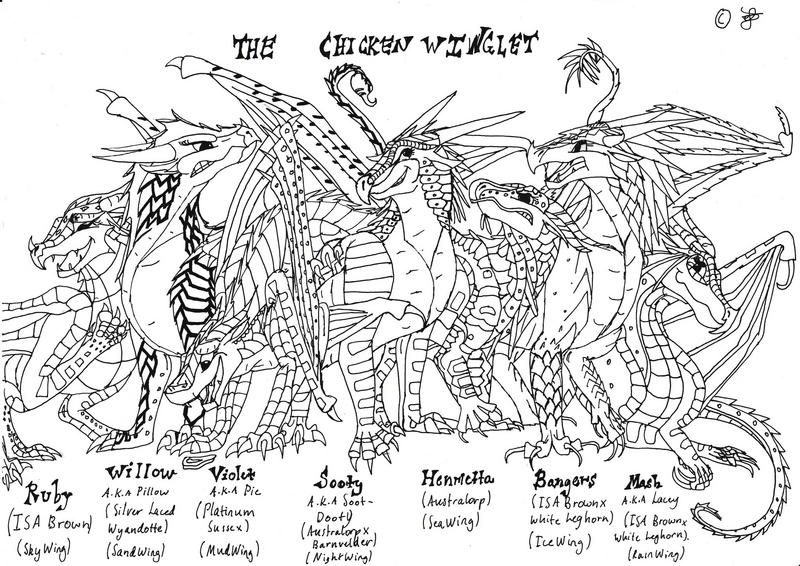 ©
THE CHICKEN WINGLET
Ruby
(ISA Brown)
(SkyWing)
Willow
A.K.A Pillow
(Silver Laced
Wyandotte)
(SandWing)
Violet
A.K.A Pie
(Platinum
Sussex)
(MudWing)
Sooty
A.K.A Soot-
Dooty
(Australorp x
Barnvelder)
(NightWing)
Henrietta
(Australorp)
(SeaWing)
Bangers
(ISA Brown x
White Leghorn)
(IceWing)
Mash
A.K.A Lacey
(ISA Brown x
White Leghorn).
(RainWing)